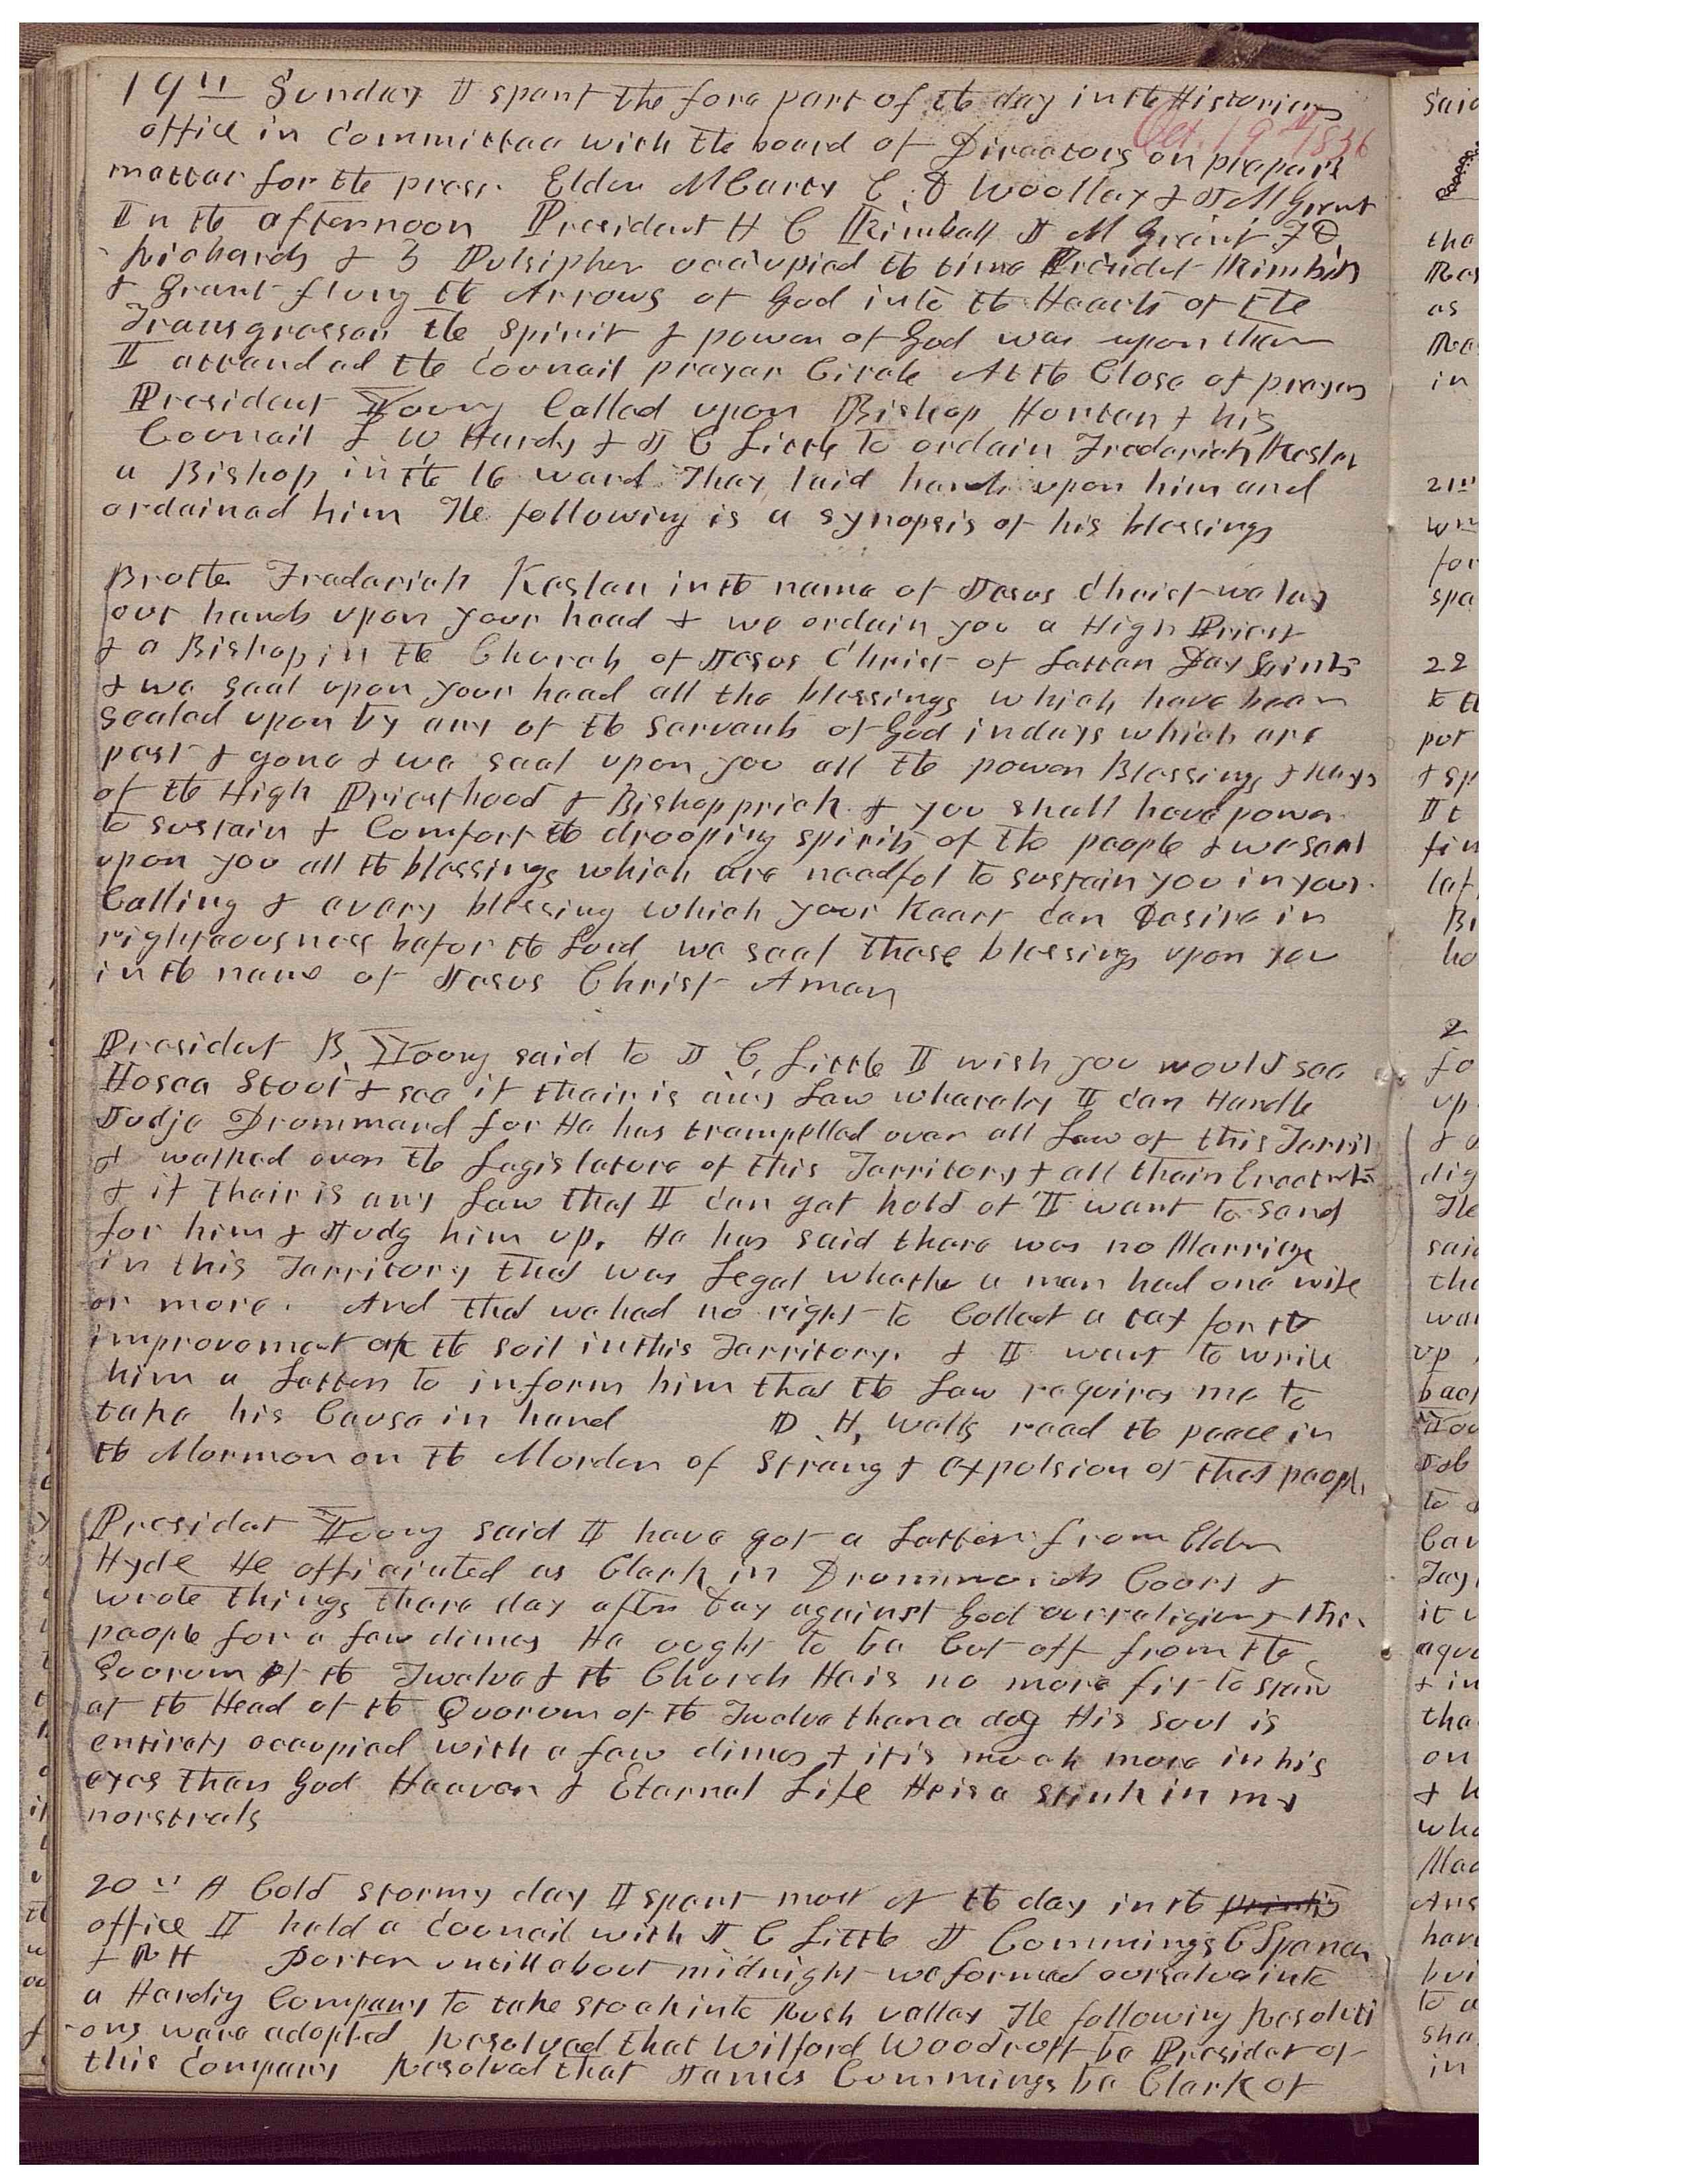 19th Sunday I spent the fore part of the day in the Historians
Oct. 19th 1856
office in committee with the board of Directors on prepare
matter for the press. Elder McCarty E. D Woolley & J M Grant
In the afternoon President H C Kimball J M Grant F D.
Richards & Z Pulsipher occupied the time President Kimball
& Grant flung the Arrows of God into the Hearts of the
Transgressor the spirit & power of God was upon them
I attended the Council prayer Circle At the Close of prayers
President Young Called upon Bishop Hunter & his
Council L W Hardy & J C Little to ordain Frederick Kesler
a Bishop in the 16 ward They laid hands upon him and
ordained him The following is a synopsis of his blessings
Brother Frederick Keslar in the name of Jesus Christ we lay
our hands upon your head & we ordain you a High Priest
& a Bishop in the Church of Jesus Christ of Latter Day Saints
& we seal upon your head all the blessings which have been
sealed upon by any of the servants of God in days which are
past & gone & we seal upon you all the power Blessings & Keys
of the High Priesthood & Bishopprick & you shall have power
to sustain & Comfort the drooping spirits of the people & we seal
upon you all the blessings which are needful to sustain you in your
Calling & every blessing which your heart can Desire in
righteousness befor the Lord we seal these blessings upon you
in the name of Jesus Christ Amen
President B. Young said to J C. Little I wish you would see
Hosea Stout & see if thair is any Law whareby I can Handle
Judje Drummond for He has trampelled over all Law of this Territ
& walked over the Legislature of this Territory & all their Enactmts
& if thair is any Law that I can get hold of I want to send
for him & Judg him up. He has said there was no Marriage
in this Territory that was Legal whether a man had one wife
or more. And that we had no right to Collect a tax for the
improvement of the soil in this Territory. & I want to write
him a Letter to inform him that the Law requires me to
take his Cause in hand D. H. Wells read the peace in
the Mormon on the Murder of Strang & expulsion of that people
President Young said I have got a Letter from Elder
Hyde He officiated as Clerk in Drummonds Court &
wrote things there day after day against God our religion & the
people for a few dimes He ought to be Cut off from the
Quorum of the Twelve & the Church He is no more fit to stand
at the Head of the Quorum of the Twelve than a dog His soul is
entirely occupied with a few dimes & it is much more in his
eyes than God Heaven & Eternal Life He is a stink in my
norstrals
20th A Cold stormy day I spent most of the day in the
office I held a council with J C Little J Cummings C Spencer
& N H Porter untill about midnight we formed ourselves into
a Harding Company to take stock into Rush valley The following Resoluti
-ons were adopted Resolved that Wilford Woodruff be President of
this Company Resolved that James Cummings be Clerk of